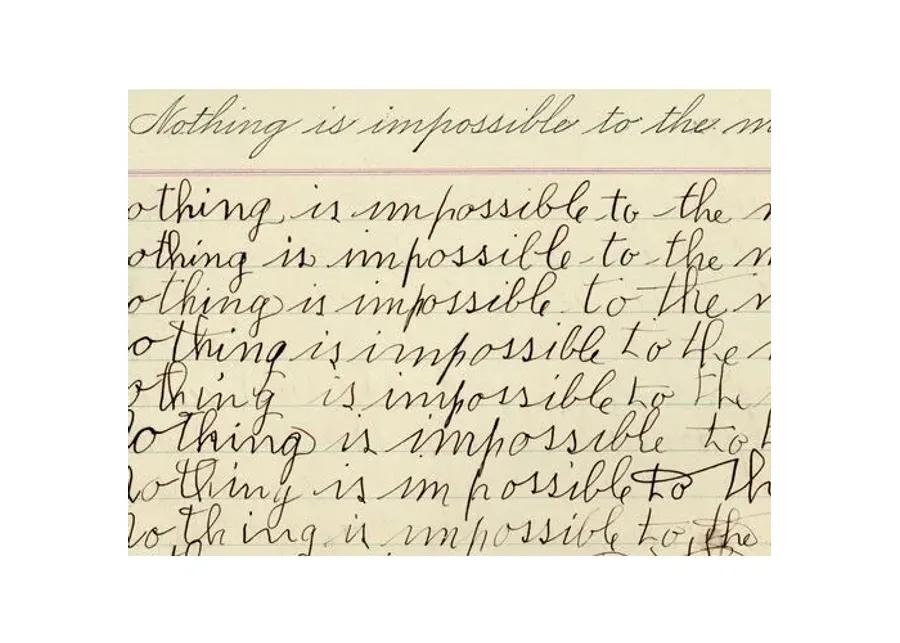 Nothing is impossible to the m
othing is impossible to the
othing is impossible to the
othing is impossible to the
othing is impossible to the
othing is impossible to the
othing is impossible to
othing is impossible to th
othing is impossible to the